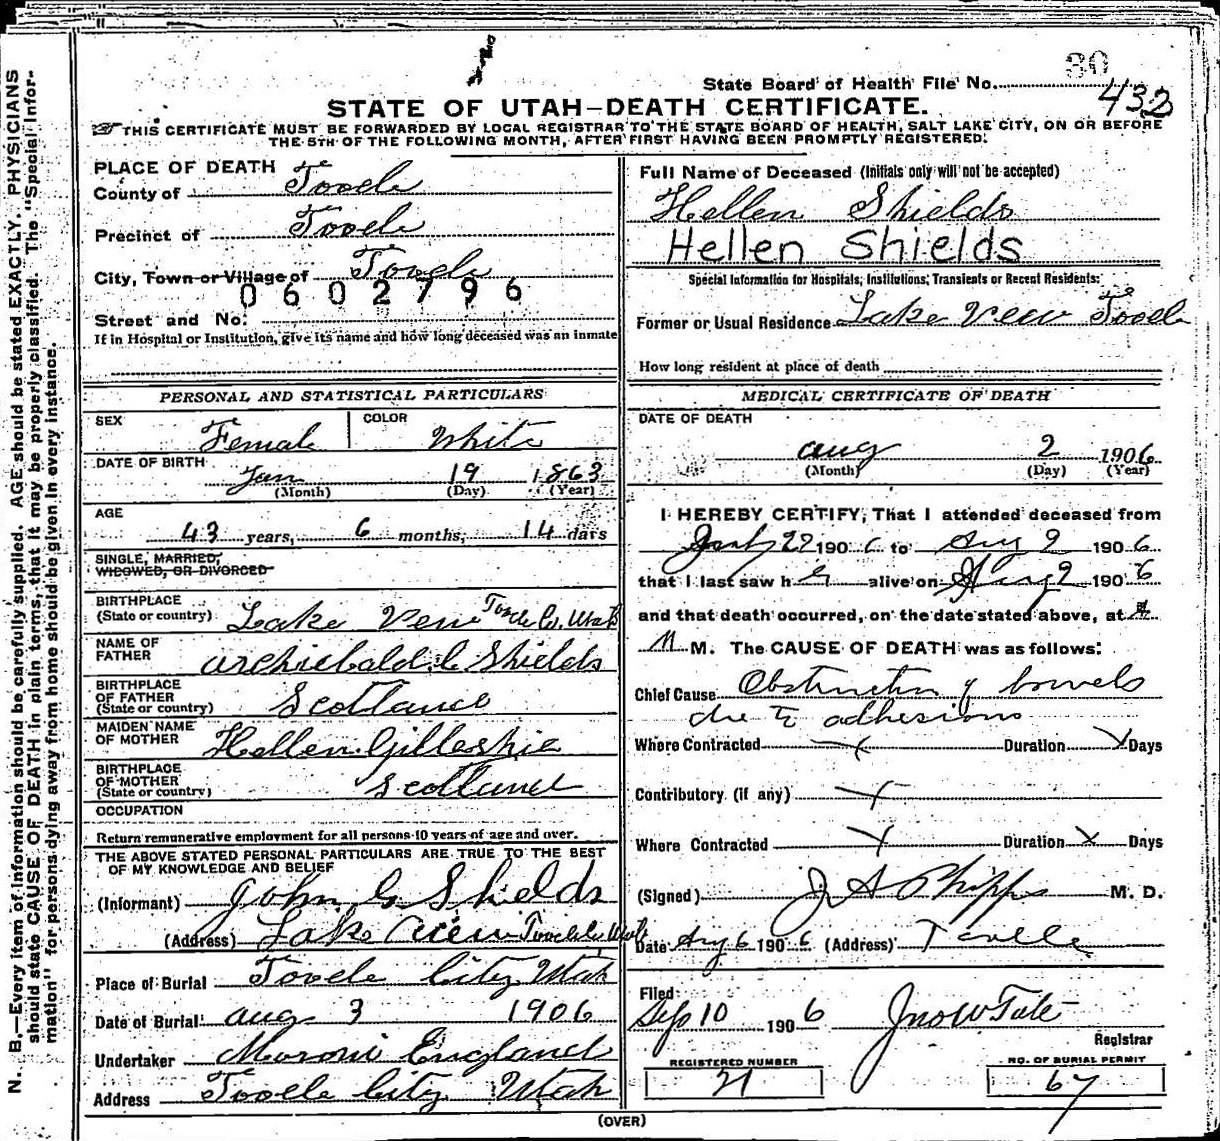 30
State Board of Health File No. 432
STATE OF UTAH—DEATH CERTIFICATE.
THIS CERTIFICATE MUST BE FORWARDED BY LOCAL REGISTRAR TO THE STATE BOARD OF HEALTH, SALT LAKE CITY, ON OR BEFORE
THE 5TH OF THE FOLLOWING MONTH, AFTER FIRST HAVING BEEN PROMPTLY REGISTERED.
N. B.—Every item of information should be carefully supplied. AGE should be stated EXACTLY. PHYSICIANS
should state CAUSE OF DEATH in plain terms, that it may be properly classified. The "Special Infor-
mation" for persons dying away from home should be given in every instance.
PLACE OF DEATH
County of Tooele
Precinct of Tooele
City, Town or Village of Tooele
0602796
Street and No.
If in Hospital or Institution, give its name and how long deceased was an inmate
PERSONAL AND STATISTICAL PARTICULARS
SEX Female COLOR White
DATE OF BIRTH Jan 19 1863
(Month) (Day) (Year)
AGE
43 years, 6 months, 14 days
SINGLE, MARRIED,
WIDOWED, OR DIVORCED
BIRTHPLACE
(State or country) Lake View Tooele Co. Utah
NAME OF
FATHER Archiebald C Shields
BIRTHPLACE
OF FATHER
(State or country) Scotland
MAIDEN NAME
OF MOTHER Hellen Gilleshie
BIRTHPLACE
OF MOTHER
(State or country) Scotland
OCCUPATION
Return remunerative employment for all persons 10 years of age and over.
THE ABOVE STATED PERSONAL PARTICULARS ARE TRUE TO THE BEST
OF MY KNOWLEDGE AND BELIEF
(Informant) John G Shields
(Address) Lake View Tooele Co Utah
Place of Burial Tooele City Utah
Date of Burial Aug 3 1906
Undertaker Moroni England
Address Tooele City Utah
Full Name of Deceased (Initials only will not be accepted)
Hellen Shields
Hellen Shields
Special Information for Hospitals, Institutions, Transients or Recent Residents:
Former or Usual Residence Lake View Tooele
How long resident at place of death
MEDICAL CERTIFICATE OF DEATH
DATE OF DEATH
Aug 2 1906
(Month) (Day) (Year)
I HEREBY CERTIFY, That I attended deceased from
July 27 1906 to Aug 2 1906
that I last saw her alive on Aug 2 1906
and that death occurred, on the date stated above, at
M. The CAUSE OF DEATH was as follows:
Chief Cause Obstruction of bowels
due to adhesions
Where Contracted x Duration x Days
Contributory (if any) x
Where Contracted x Duration x Days
(Signed) J A Phipps M. D.
Date Aug 6 1906 (Address) Tooele
Filed
Sep 10 1906 Jno W Tate
Registrar
REGISTERED NUMBER NO. OF BURIAL PERMIT
21 67
(OVER)